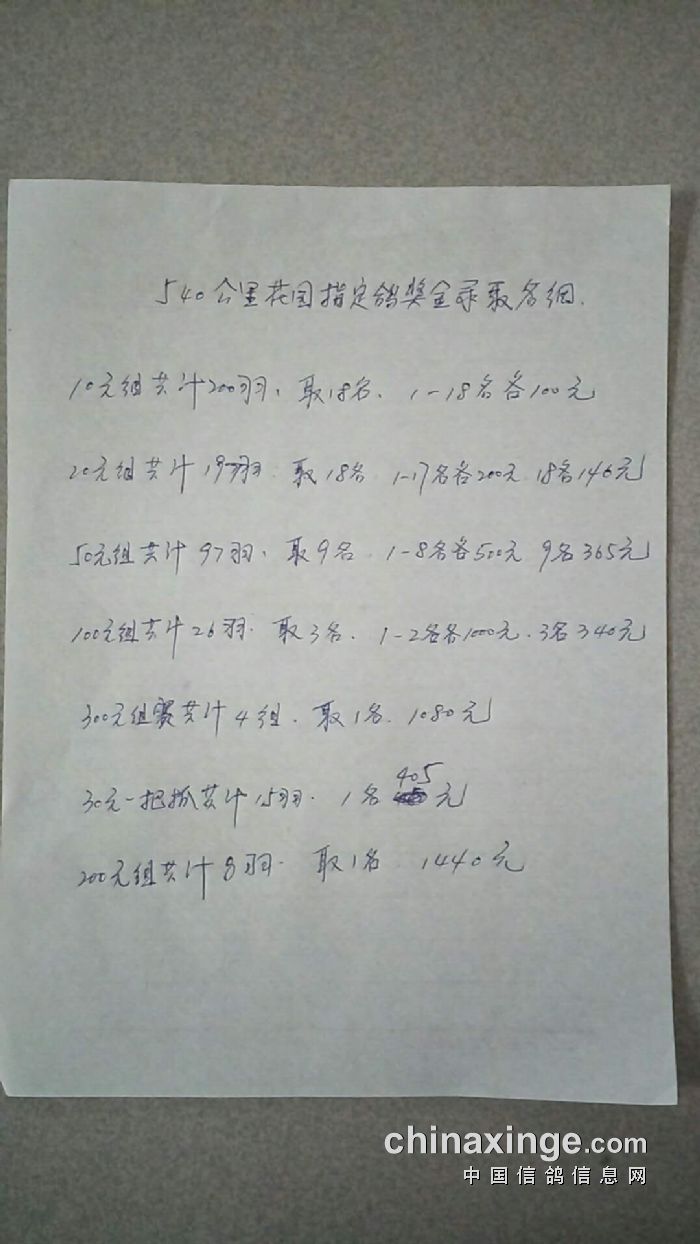 540公里花园指定鸽奖金录取名细.
10元组共计200羽, 取18名. 1-18名各100元
20元组共计197羽. 取18名 1-17名各200元 18名146元
50元组共计97羽, 取9名. 1-8名各500元 9名365元
100元组共计26羽. 取3名. 1-2名各1000元. 3名340元
300元组赛共计4组. 取1名. 1080元
30元一把抓共计15羽. 1名405元
200元组共计8羽. 取1名. 1440元
chinaxinge.com
中国信鸽信息网